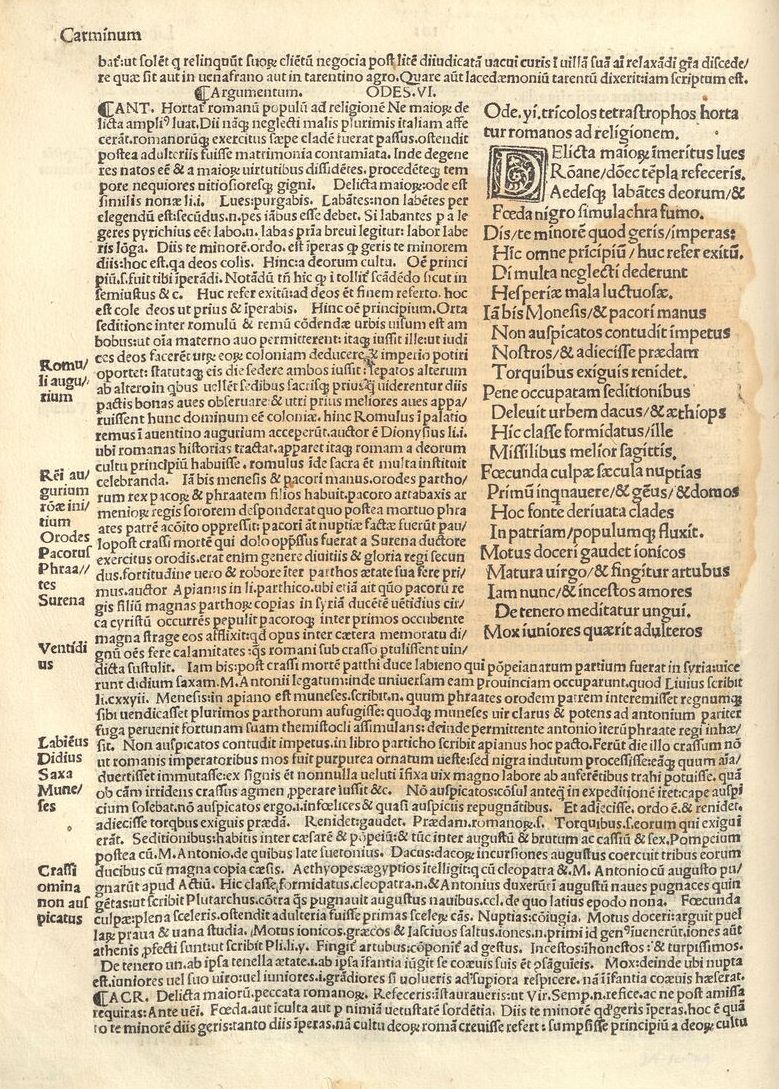 Carminum
bat⁏ut solēt q relinquūt suoꝝ cliētū negocia post litē diiudicatā uacui curis ī uillā suā aī relaxādi gr̄a discede/
re quæ sit aut in uenafrano aut in tarentino agro. Quare aūt lacedæmoniū tarentū dixerit:iam scriptum est.
¶Argumentum. ODES.VI.
¶CANT. Hortat romanū populū ad religionē Ne maioꝝ de
licta ampli⁹ luat. Dii nāqꝫ neglecti malis plurimis italiam affe
cerāt.romanorūqꝫ exercitus sæpe cladē fuerat passus.ostendit
postea adulteriis fuisse matrimonia contamīata. Inde degene
res natos eē & a maioꝝ uirtutibus dissidētes. procedēteqꝫ tem
pore nequiores uitiosioresqꝫ gigni. Delicta maioꝝ:ode est
similis nonæ li.i. Lues:purgabis. Labātes:non labētes per
elegendū est:secūdus.n.pes iābus esse debet. Si labantes p a le
geres pyrichius eē: labo.n. labas prīa breui legitur: labor labe
ris lōga. Diis te minorē.ordo. est īperas qꝫ geris te minorem
diis:hoc est.qa deos colis. Hinc:a deorum cultu. Oē princi
piū.s.fuit tibi īperādi. Notādū tn̄ hic qꝫ i tollit scādēdo sicut in
semiustus & c. Huc refer exitū:ad deos ēt finem referto. hoc
est cole deos ut prius & īperabis. Hinc oē principium. Orta
seditione inter romulū & remū cōdendæ urbis uisum est am
bobus:ut oīa materno auo permitterent: itaqꝫ iussit ille:ut iudi
ces deos facerēt urꝫ eoꝝ coloniam deducere & imperio potiri
oportet: statutaqꝫ eis die sedere ambos iussit: sepatos alterum
ab altero in qbus uellēt sedibus sacrisqꝫ priusqꝫ uiderentur diis
pactis bonas aues obseruare:& utri prius meliores aues appa/
ruissent hunc dominum eē coloniæ. hinc Romulus ī palatio
remus ī auentino augurium acceperūt.auctor ē Dionysius li.i.
ubi romanas historias tractat.apparet itaqꝫ romam a deorum
cultu principiū habuisse. romulus īde sacra ēt multa instituit
celebranda. Iā bis menesis & pacori manus.orodes partho/
rum rex pacoꝝ & phraatem filios habuit.pacoro artabaxis ar
menioꝝ regis sororem desponderat quo postea mortuo phra
ates patrē acōito oppressit: pacori āt nuptiæ factæ fuerūt pau/
lopost crassi mortē qui dolo oppssus fuerat a Surena ductore
exercitus orodis.erat enim genere diuitiis & gloria regi secun
dus.fortitudine uero & robore īter parthos ætate sua fere pri/
mus.auctor Apianus in li.parthico.ubi etiā ait quo pacorū re
gis filiū magnas parthoꝝ copias in syriā ducētē uētidius cir/
ca cyristū occurrēs pepulit pacoroqꝫ inter primos occubente
magna strage eos afflixit:qd opus inter cætera memoratu di/
gnū oēs fere calamitates :qs romani sub crasso ptulissent uin/
Romu/
li augu/
rium
Rēi au/
gurium
rōæ ini/
tium
Orodes
Pacorus
Phraa//
tes
Surena
Ventidi
us
Ode.yi.tricolos tetrastrophos horta
tur romanos ad religionem.
DElicta maioꝝ īmeritus lues
Rōane/dōec tēpla refeceris.
Aedesqꝫ labātes deorum/&
Fœda nigro simulachra fumo.
Dis/te minorē quod geris/imperas:
Hic omne prīcipiū/huc refer exitū.
Di multa neglecti dederunt
Hesperiæ mala luctuosæ.
Iā bis Monesis/& pacori manus
Non auspicatos contudit impetus
Nostros/& adiecisse prædam
Torquibus exiguis renidet.
Pene occupatam seditionibus
Deleuit urbem dacus/& æthiops
Hic classe formidatus/ille
Missilibus melior sagittis.
Fœcunda culpæ sæcula nuptias
Primū inqnauere/& gēus/& domos
Hoc fonte deriuata clades
In patriam/populumqꝫ fluxit.
Motus doceri gaudet ionicos
Matura uirgo/& fingitur artubus
Iam nunc/& incestos amores
De tenero meditatur ungui.
Mox iuniores quærit adulteros
dicta sustulit. Iam bis:post crassi mortē parthi duce labieno qui pōpeianarum partium fuerat in syria:uice
runt didium saxam.M.Antonii legatum:inde uniuersam eam prouinciam occuparunt.quod Liuius scribit
li.cxxyii. Menesis:in apiano est muneses.scribit.n. quum phraates orodem patrem interemisset regnumqꝫ
sibi uendicasset plurimos parthorum aufugisse: quodqꝫ muneses uir clarus & potens ad antonium pariter
fuga peruenit fortunam suam themistocli assimulans: deinde permittente antonio iterū phraate regi inhæ/
sit. Non auspicatos contudit impetus.in libro parthico scribit apianus hoc pacto.Ferūt die illo crassum nō
ut romanis imperatoribus mos fuit purpurea ornatum ueste:sed nigra indutum processisse:eāqꝫ quum aīa/
duertisset immutasse:ex signis ēt nonnulla ueluti īfixa uix magno labore ab auferētibus trahi potuisse. quā
ob cām irridens crassus agmen ꝓperare iussit &c. Nō auspicatos:cōsul anteqꝫ in expeditionē iret:cape auspi
cium solebat.nō auspicatos ergo.i.infœlices & quasi auspiciis repugnātibus. Et adiecisse.ordo ē.& renidet.
adiecisse torqbus exiguis prædā. Renidet:gaudet. Prædam.romanoꝝ.s. Torquibus.s.eorum qui exigui
erāt. Seditionibus:habitis inter cæsarē & pōpeiū:& tūc inter augustū & brutum ac cassiū & sex.Pompeium
postea cū.M.Antonio.de quibus late suetonius. Dacus:dacoꝝ incursiones augustus coercuit tribus eorum
ducibus cū magna copia cæsis. Aethyopes:ægyptios ītelligit:q cū cleopatra &.M.Antonio cū augusto pu/
gnarūt apud Actiū. Hic classe formidatus.cleopatra.n.& Antonius duxerūt ī augustū naues pugnaces quin
gētas:ut scribit Plutarchus.cōtra qs pugnauit augustus nauibus.ccl.de quo latius epodo nona. Fœcunda
culpæ:plena sceleris.ostendit adulteria fuisse primas sceleꝝ cās. Nuptias:cōiugia. Motus doceri:arguit puel
laꝝ praua & uana studia. Motus ionicos.græcos & lasciuos saltus.iones.n.primi id gen⁹ īuenerūt.iones aūt
athenis ꝓfecti sunt:ut scribit Pli.li.y. Fingit artubus:cōponit ad gestus. Incestos:īhonestos :& turpissimos.
De tenero un.ab ipsa tenella ætate.i.ab ipsa īfantia iūgit se coæuis suis ēt ꝯsāguīeis. Mox:deinde ubi nupta
est.iuniores uel suo uiro:uel iuniores.i.grādiores si uolueris ad supiora respicere. nā ī īfantia coæuis hæserat.
¶ACR. Delicta maiorū.peccata romanoꝝ. Refeceris:īstauraueris:ut Vir.Semp.n.refice.ac ne post amissa
requiras:Ante uēi. Fœda.aut īculta aut p nimiā uetustatē sordētia. Diis te minorē qd geris īperas.hoc ē quā
to te minorē diis geris:tanto diis īperas.nā cultu deoꝝ romā creuisse refert: sumpsisse principiū a deoꝝ cultu
Labiēus
Didius
Saxa
Mune/
ses
Crassi
omina
non aus
picatus